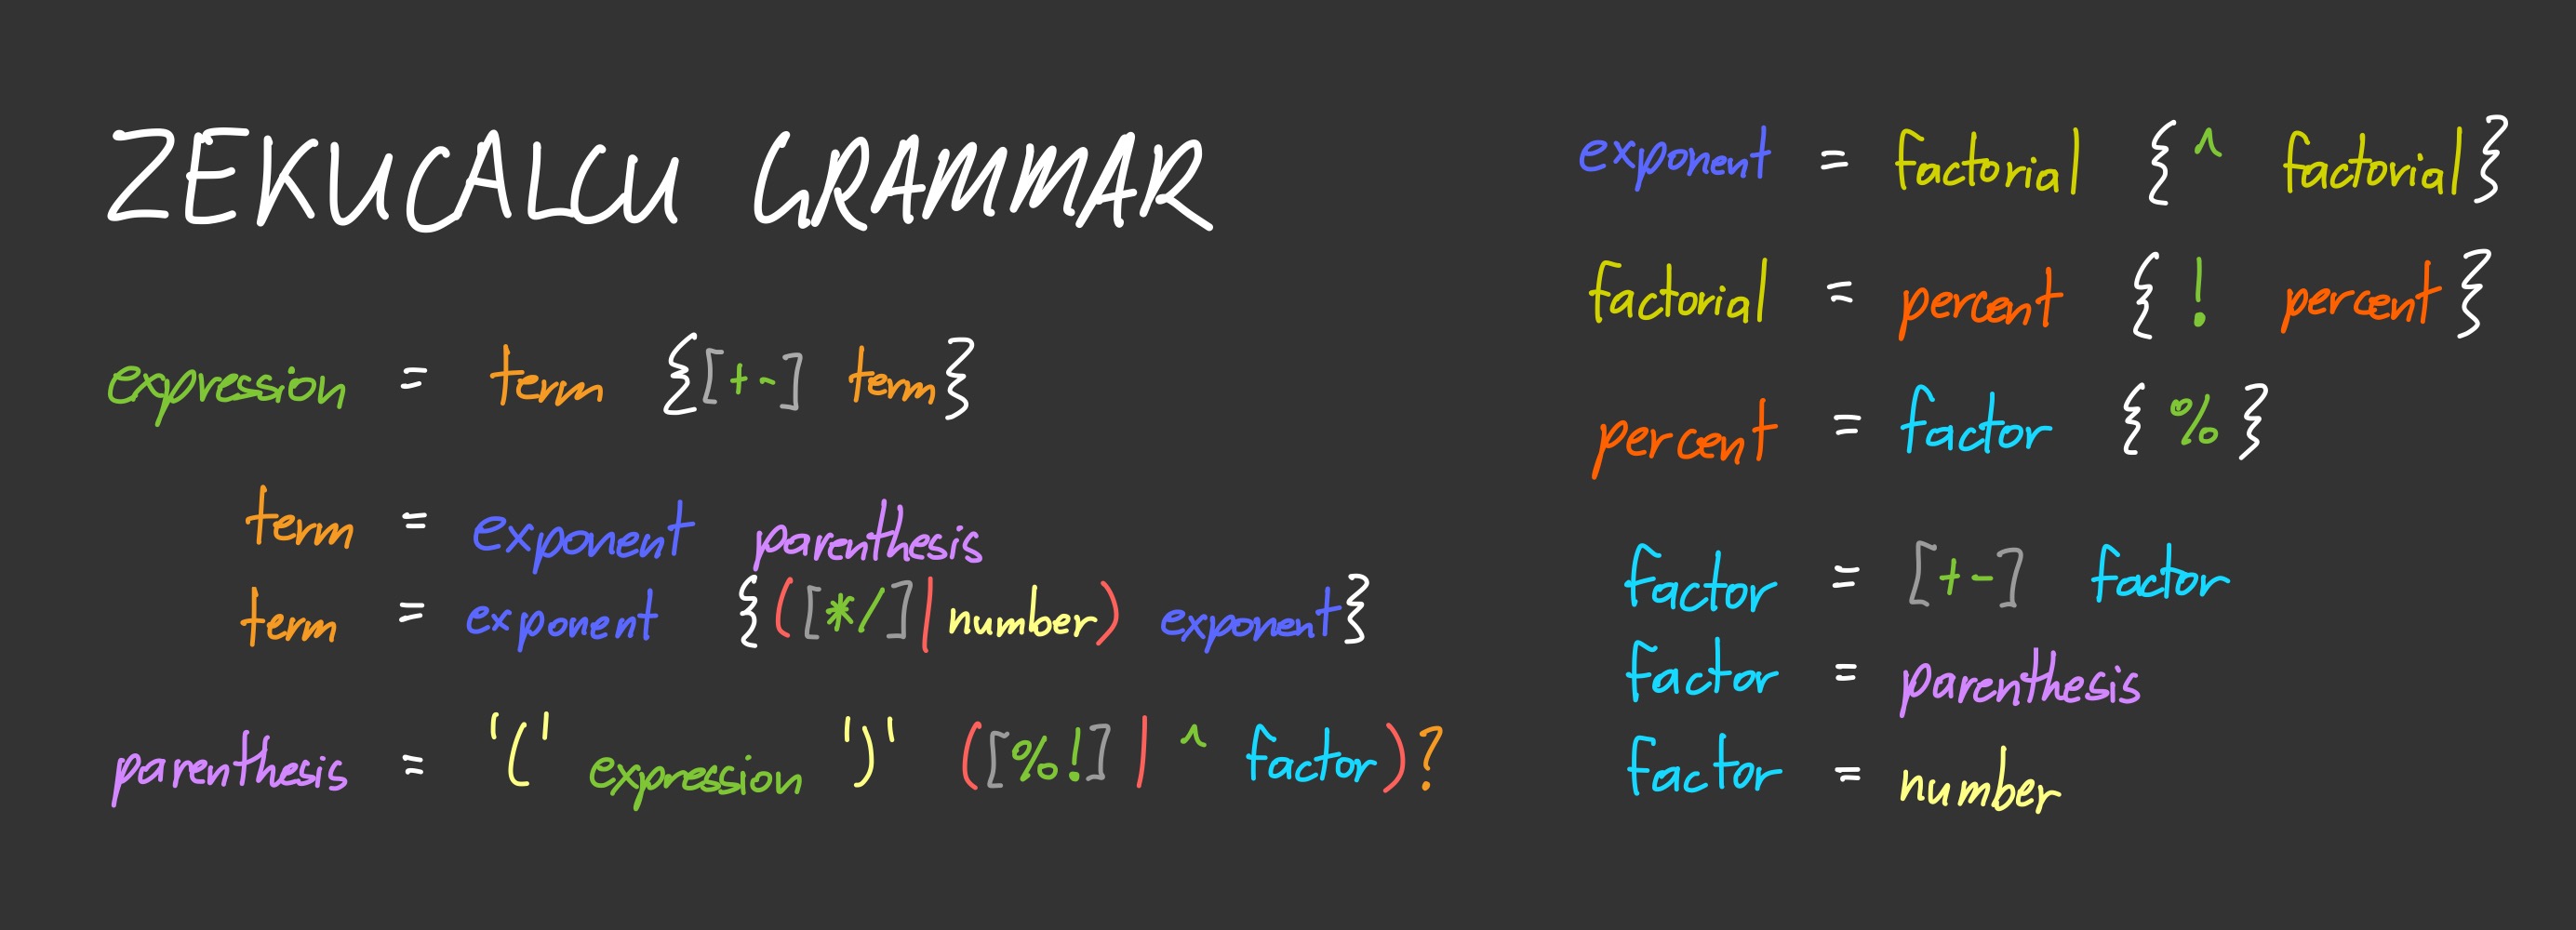 ZEKUCALCU GRAMMAR
expression = term {[+-] term}
term = exponent parenthesis
term = exponent {([*/]|number) exponent}
parenthesis = '(' expression ')' ([%!]| ^ factor)?
exponent = factorial {^ factorial}
factorial = percent {! percent}
percent = factor {%}
factor = [+-] factor
factor = parenthesis
factor = number